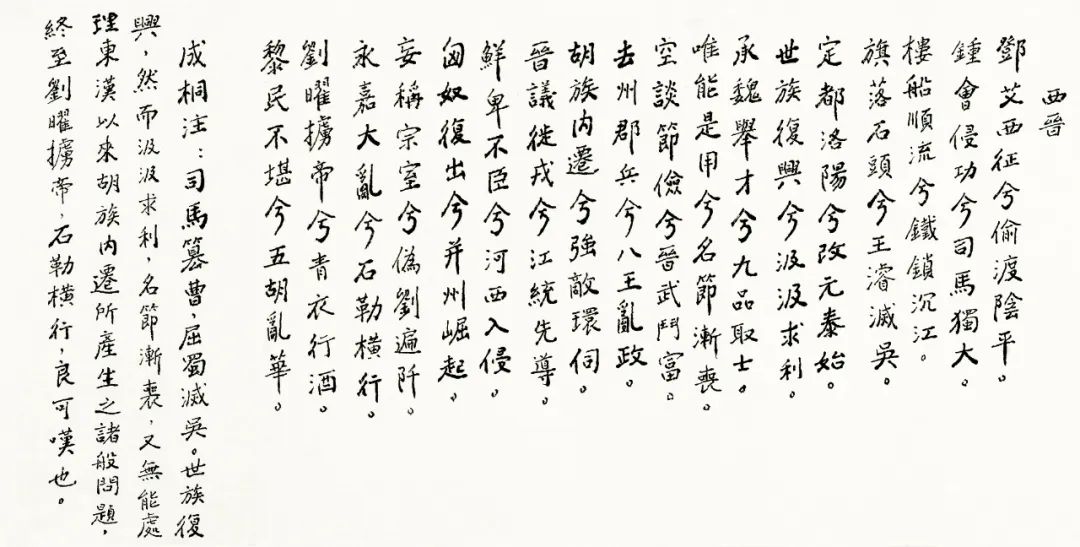 西晉
鄧艾西征兮偷渡陰平。
鍾會侵功兮司馬獨大。
樓船順流兮鐵鎖沉江。
旗落石頭兮王濬滅吳。
定都洛陽兮改元泰始。
世族復興兮汲汲求利。
承魏舉才兮九品取士。
唯能是用兮名節漸喪。
空談節儉兮晉武鬥富。
去州郡兵兮八王亂政。
胡族內遷兮強敵環伺。
晉議徙戎兮江統先導。
鮮卑不臣兮河西入侵。
匈奴復出兮并州崛起。
妄稱宗室兮偽劉遍阡。
永嘉大亂兮石勒橫行。
劉曜擄帝兮青衣行酒。
黎民不堪兮五胡亂華。
成桐注：司馬篡曹，屈蜀滅吳。世族復
興，然而汲汲求利，名節漸喪，又無能處
理東漢以來胡族內遷所產生之諸般問題，
終至劉曜擄帝，石勒橫行，良可嘆也。